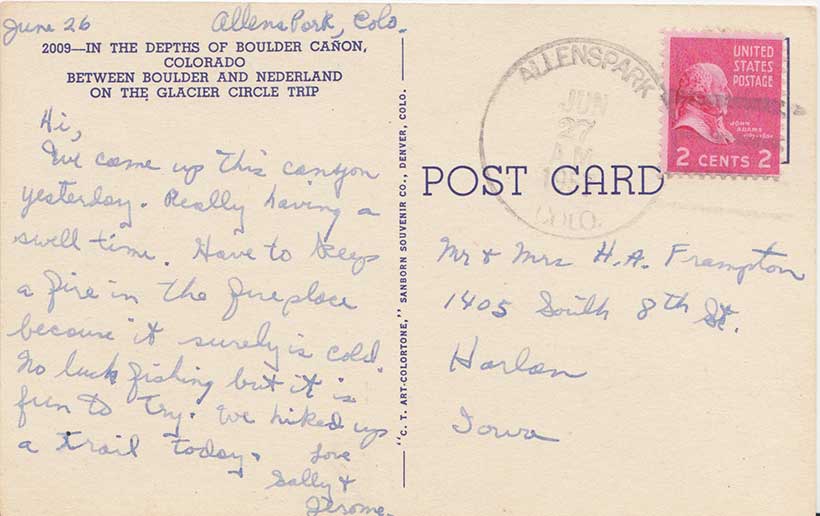 June 26 Allens Park, Colo.
2009—IN THE DEPTHS OF BOULDER CAÑON,
COLORADO
BETWEEN BOULDER AND NEDERLAND
ON THE GLACIER CIRCLE TRIP
Hi,
We came up this canyon
yesterday. Really having a
swell time. Have to keep
a fire in the fireplace
because it surely is cold.
No luck fishing but it is
fun to try. We hiked up
a trail today.
Love
Sally &
Jerome.
"C. T. ART-COLORTONE," SANBORN SOUVENIR CO., DENVER, COLO.
POST CARD
ALLENSPARK
JUN
27
COLO.
UNITED
STATES
POSTAGE
JOHN
ADAMS
2 CENTS 2
Mr & Mrs H.A. Frampton
1405 South 8th St.
Harlan
Iowa